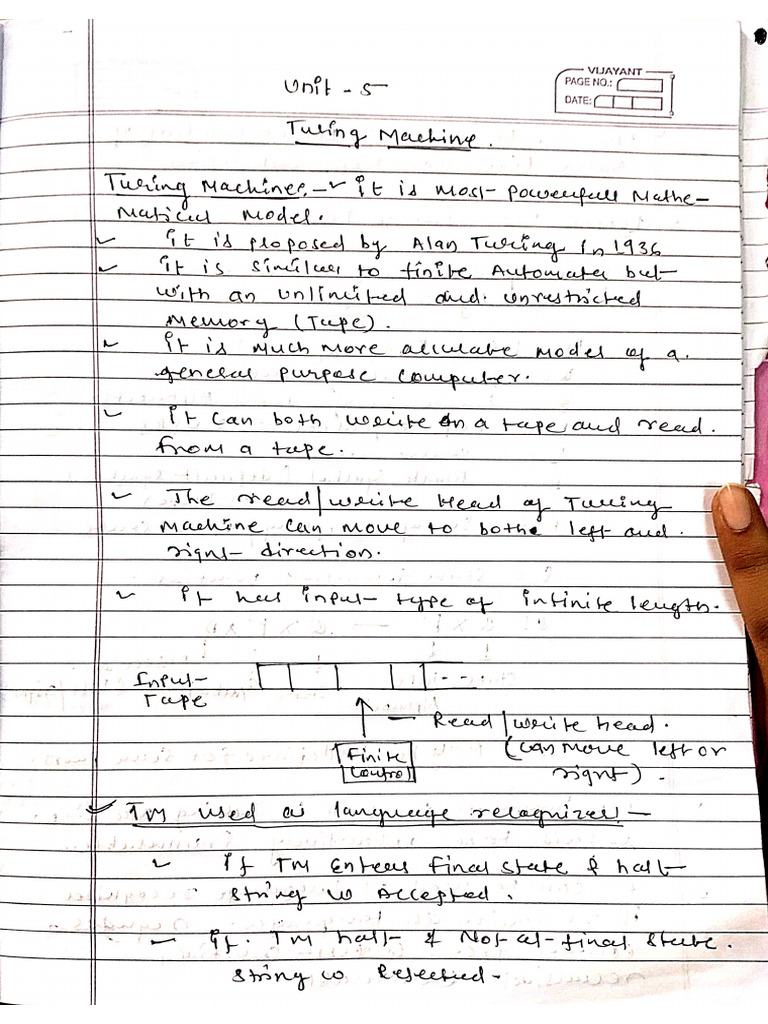 VIJAYANT
PAGE NO.:
DATE:
Unit - 5
Turing Machine.
Turing Machine:- ✓ it is most powerfull Mathe-
Matical Model.
✓ it is proposed by Alan Turing in 1936
✓ it is similar to finite Automata but
with an unlimited and unrestricted
Memory (Tape).
✓ It is Much More accurate Model of a
general purpose computer.
✓ it can both write on a tape and read
from a tape.
✓ The read/write Head of Turing
Machine can move to both left and
right direction.
✓ it has input type of infinite length.
Input
Tape
Read/write head.
(can move left or
right).
Finite
Control
✓ TM used as language recognizer -
✓ If TM Enters final state & halt
string is Accepted.
- if TM halt & Not at final state.
string is Rejected -